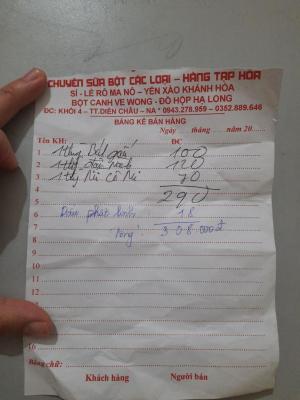 CHUYÊN SỮA BỘT CÁC LOẠI - HÀNG TẠP HÓA
SỈ - LẺ RÔ MA NÔ - YẾN XÀO KHÁNH HÒA
BỘT CANH VE WONG - ĐỒ HỘP HẠ LONG
ĐC: KHỐI 4 - TT.DIỄN CHÂU - NA * 0943.278.959 - 0352.889.646
BẢNG KÊ BÁN HÀNG
Ngày ...... tháng ...... năm 20......
Tên KH: ĐC:
1 1 thg 100
2 1 thg 120
3 1 thg 70
4
5 290
6 phát sinh 18
7 Tổng: 308.000đ
8
9
16
Bằng chữ:
Khách hàng Người bán